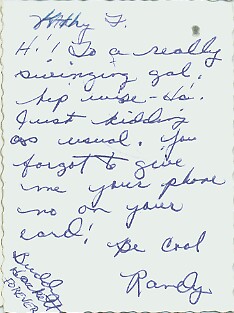 Kathy F.
Hi! To a really
swinging gal,
hip wise - Ha!
Just kidding
as usual. You
forgot to give
me your phone
no on your
card!
Be Cool
Randy
Budd
Hackett
FOREVER